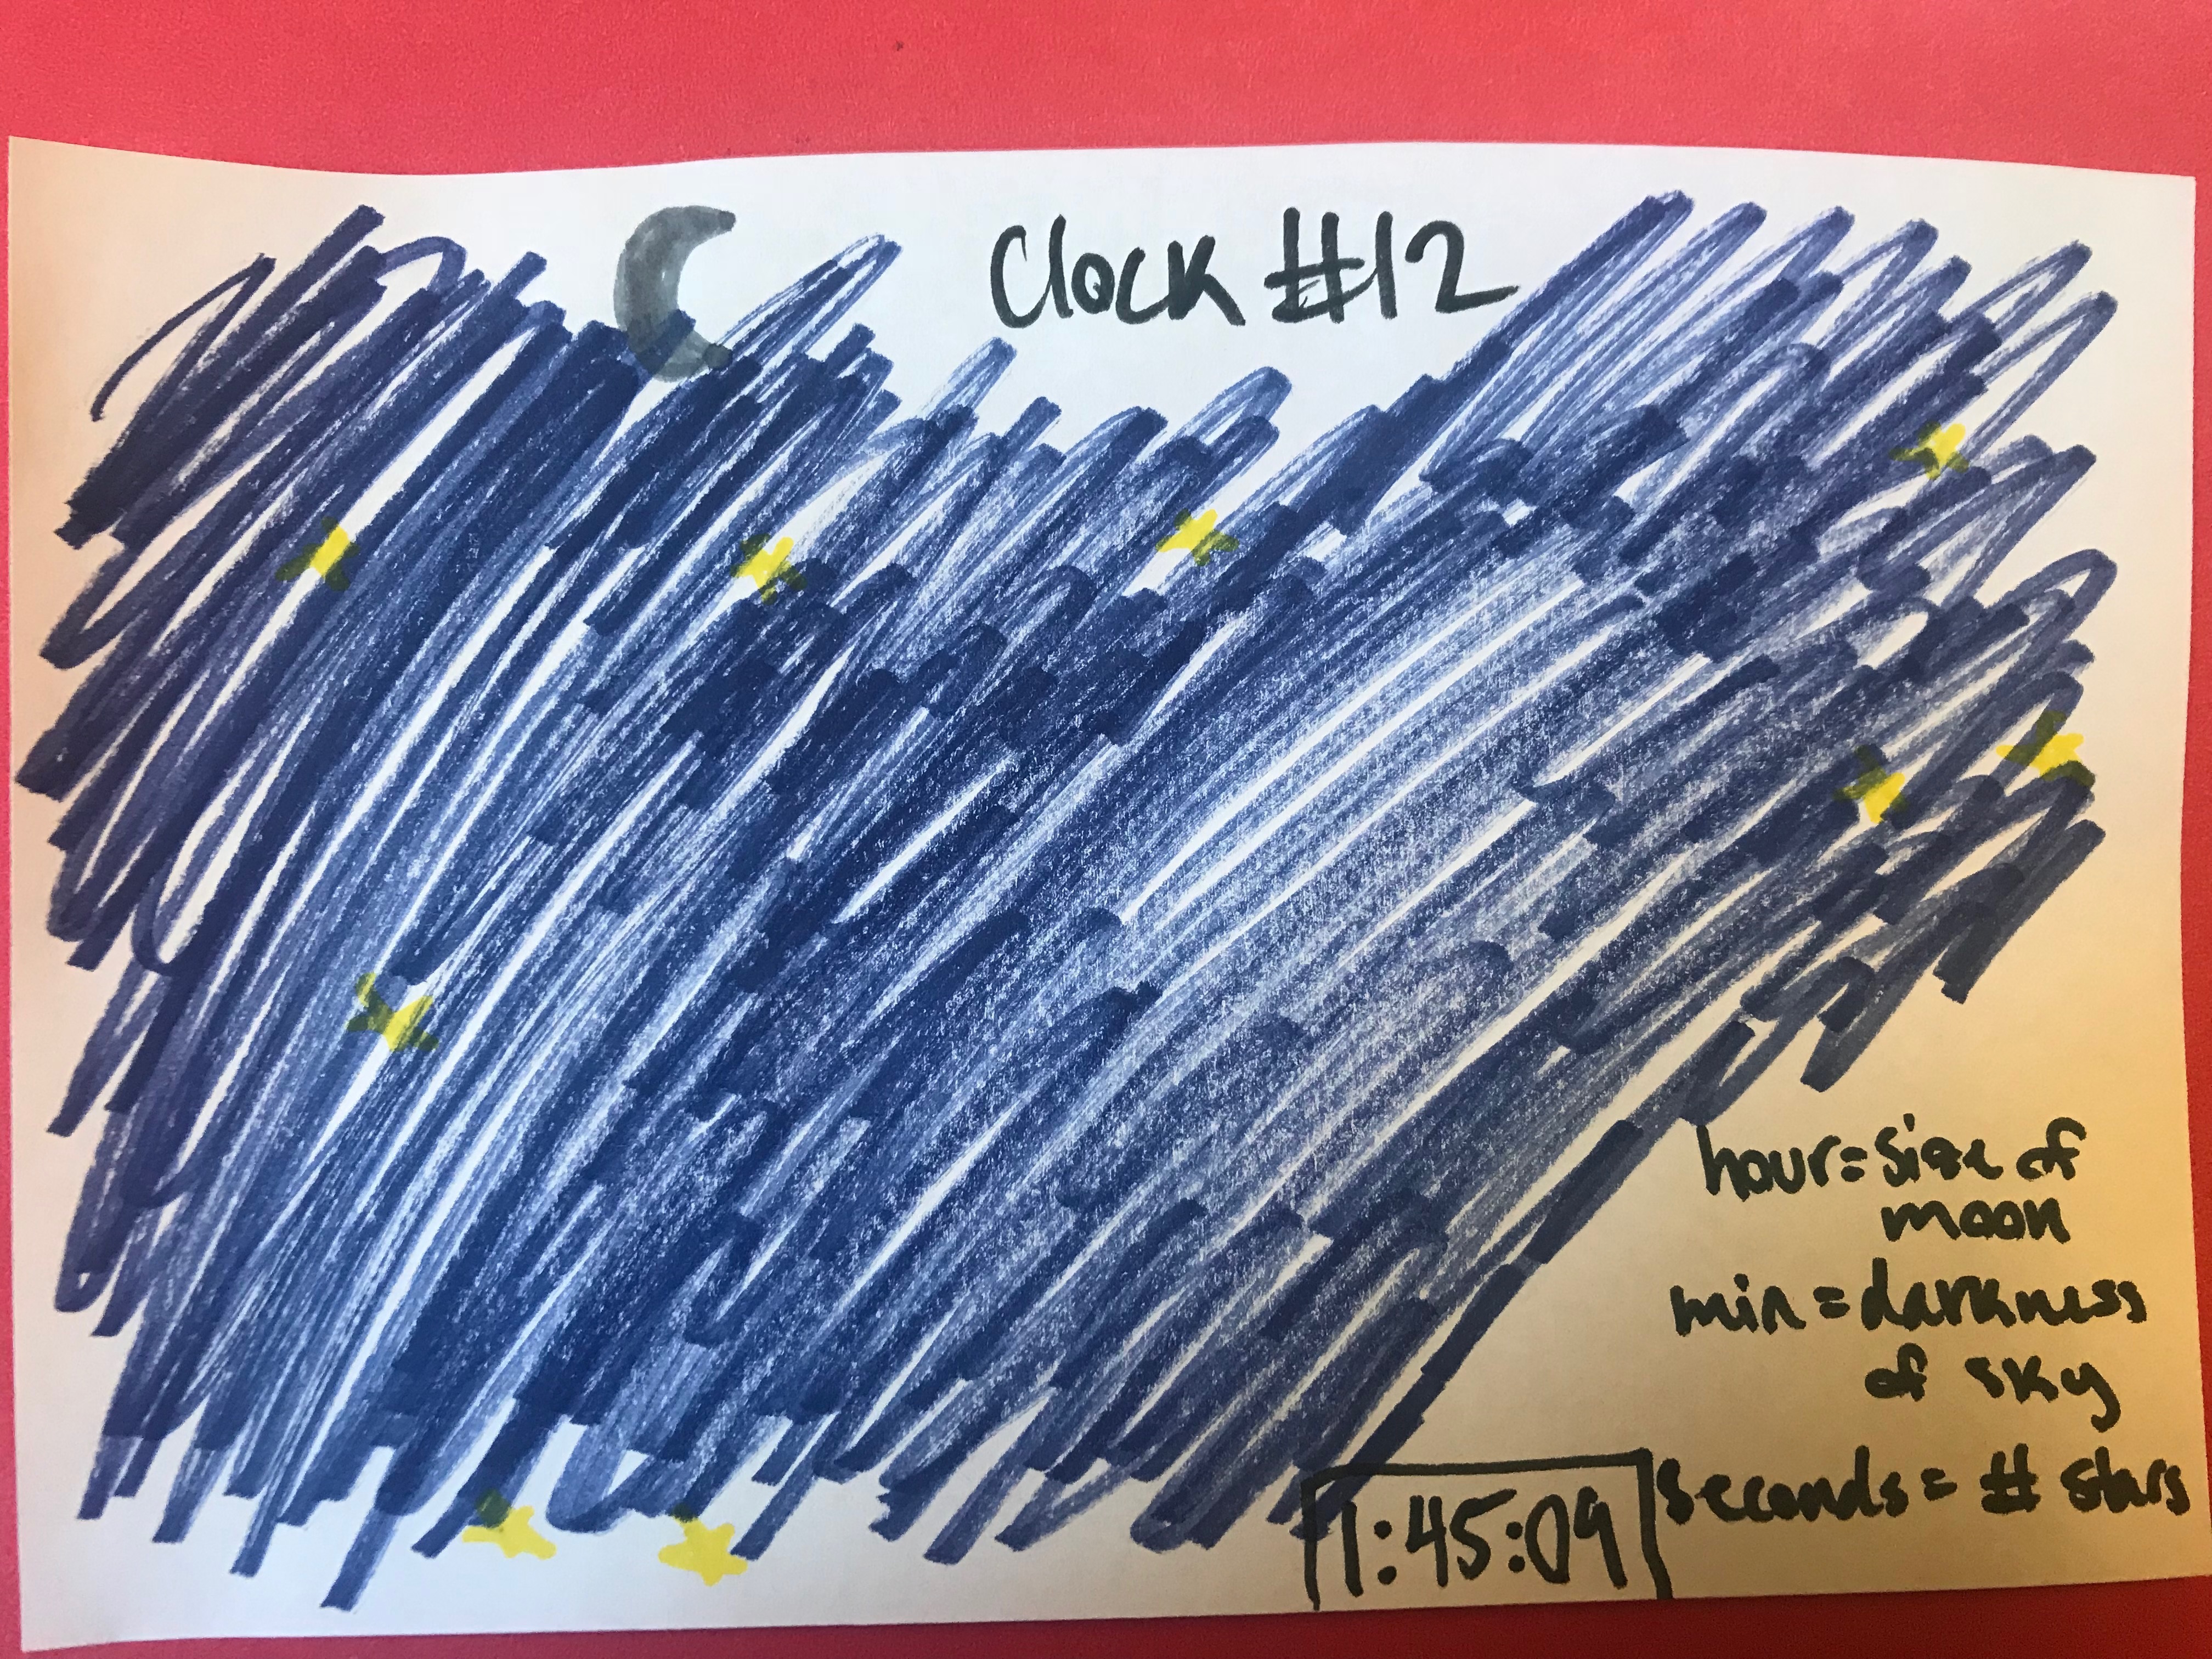 Clock #12
hour=size of
moon
min=darkness
of sky
seconds= # stars
1:45:09